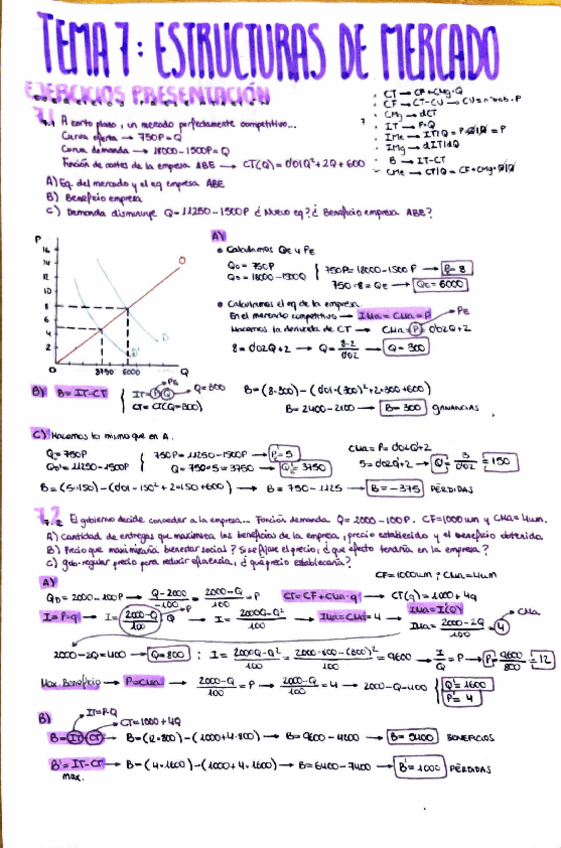 TEMA 7: ESTRUCTURAS DE MERCADO
EJERCICIOS PRESENTACIÓN
· CT → CF+CMg·Q
· CF → CT-CU
· CMg → dCT
· IT → P·Q
· IMe → IT/Q = P·Q/Q = P
· IMg → dIT/dQ
· B → IT-CT
· CMe → CT/Q
7.1 A corto plazo, un mercado perfectamente competitivo...
Curva oferta → 750P=Q
Curva demanda → 18000-1500P=Q
Función de costes de la empresa ABE → CT(Q)=0'01Q²+2Q+600
A) Eq. del mercado y el eq empresa ABE
B) Beneficio empresa
C) Demanda disminuye Q=11250-1500P ¿Nuevo eq? ¿Beneficio empresa ABE?
P
16
14
12
10
8
6
4
2
O
D
D'
3750 6000
Q
A)
• Calculamos QE y PE
QO=750P
QD=18000-1500Q
750P=18000-1500P → P=8
750·8=QE → QE=6000
• Calculamos el eq de la empresa
En el mercado competitivo → IMa=CMa=P
PE
Hacemos la derivada de CT → CMa=P=0'02Q+2
8=0'02Q+2 → Q=8-2/0'02 → Q=300
B) B=IT-CT
IT=P·Q
PE
Q=300
CT=CT(Q=300)
B=(8·300)-(0'01·(300)²+2·300+600)
B=2400-2100 → B=300 GANANCIAS
C) Hacemos lo mismo que en A.
Q=750P
QD'=11250-1500P
750P=11250-1500P → P'=5
Q=750·5=3750 → Q'=3750
CMa=P=0'02Q+2
5=0'02Q+2 → Q'=3/0'02=150
B=(5·150)-(0'01·150²+2·150+600) → B=750-1125 → B=-375 PÉRDIDAS
7.2 El gobierno decide conceder a la empresa... Función demanda Q=2000-100P. CF=1000um y CMa=4um.
A) Cantidad de entregas que maximiza los beneficios de la empresa, precio establecido y el beneficio obtenido.
B) ¿Precio que maximizaría bienestar social? Si se fijase el precio, ¿qué efecto tendría en la empresa?
C) gob. regular precio para reducir eficiencia, ¿qué precio establecería?
A)
CF=1000um ; CMa=4um
QD=2000-100P → Q-2000/-100=2000-Q/100=P
CT=CF+CMa·q → CT(q)=1000+4q
I=P·q → I=2000-Q/100·Q
P
→ I=2000Q-Q²/100
IMa=CMa=4
IMa=I'(Q)
IMa=2000-2Q/100=4
CMa
2000-2Q=400 → Q=800 : I=2000Q-Q²/100=2000·800-(800)²/100=9600 → I/Q=P → P=9600/800=12
Max. Beneficio → P=CMa → 2000-Q/100=P → 2000-Q/100=4 → 2000-Q=400
Q'=1600
P'=4
B)
IT=P·Q
CT=1000+4Q
B=IT-CT → B=(12·800)-(1000+4·800) → B=9600-4200 → B=5400 BENEFICIOS
B'=IT-CT → B=(4·1600)-(1000+4·1600) → B=6400-7400 → B'=1000 PÉRDIDAS
max.